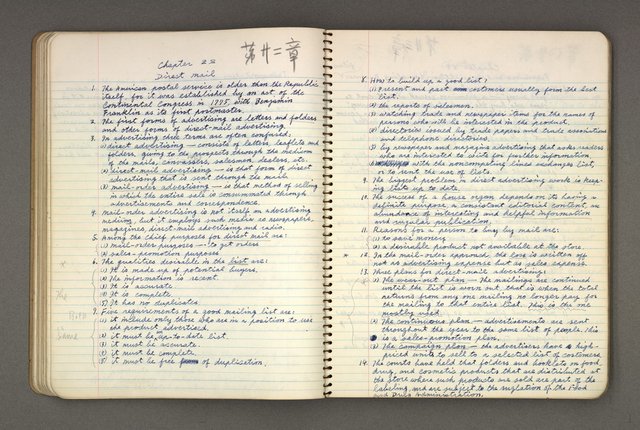 Chapter 22 第廿二章
Direct mail
1. The American postal service is older than the Republic
itself, for it was established by an act of the
Continental Congress in 1775 with Benjamin
Franklin as its first postmaster.
2. The first forms of advertising are letters and folders
and other forms of direct-mail advertising.
3. In advertising three terms are often confused:
(1) direct advertising — consists of letters, leaflets and
folders, going to the prospects through the medium
of the mails, canvassers, salesmen, dealers, etc.
(2) direct-mail advertising — is that form of direct
advertising that is sent through the mail.
(3) mail-order advertising — is that method of selling
in which the entire sale is consummated through
advertisements and correspondence.
4. Mail-order advertising is not itself an advertising
medium, but it employs such media as newspapers,
magazines, direct-mail advertising and radio.
5. Among the chief purposes for direct mail are:
(1) mail-order purposes — to get orders
(2) sales-promotion purposes
6. The qualities desirable in the list are:
(1) It is made up of potential buyers.
(2) The information is recent.
(3) It is accurate
(4) It is complete.
(5) It has no duplicates.
7. Five requirements of a good mailing list are:
(1) it include only those who are in a position to use
the product advertised.
(2) it must be up-to-date list.
(3) it must be accurate.
(4) it must be complete.
(5) it must be free of duplication.
The
Both
Same
8. How to build up a good list?
(1) present and past customers usually form the best
list.
(2) the reports of salesmen.
(3) watching trade and newspaper items for the names of
persons who will be interested in the product.
(4) directories issued by trade papers and trade associations
and telephone directories.
(5) by newspaper and magazine advertising that asks readers
who are interested to write for further information
(6) with the noncompeting lines exchanges list,
or to rent the use of lists.
9. The biggest problem in direct advertising work is keep-
ing lists up to date.
10. The success of a house organ depends on its having a
definite purpose a consistent editorial content an
abundance of interesting and helpful information
and regular publication.
11. Reasons for a person to buy by mail are:
(1) to save money
(2) a desirable product not available at the store.
* 12. In the mail-order approach, the cost is written off
not as advertising expense but as sales expense.
13. Three plans for direct-mail advertising:
(1) The wear-out plan — The mailings are continued
until the list is worn out, that is when the total
returns from any one mailing no longer pay, for
the mailing to that entire list. This is the one
mostly used.
(2) The continuous plan — advertisements are sent
throughout the year to the same list of people. This
is a sales-promotion plan.
(3) The campaign plan — the advertisers have a high-
priced units to sell to a selected list of customers
14. The courts have held that folders and booklets on food,
drug, and cosmetic products that are distributed at
the store where such products are sold are part of the
labeling, and are subject to the regulation of the Food
and Drug Administration.